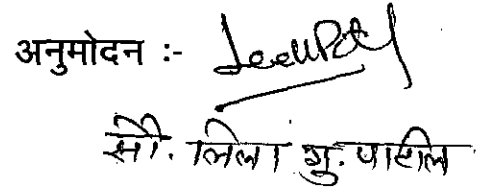 अनुमोदन :-
सौ. लिला गु. पाटील